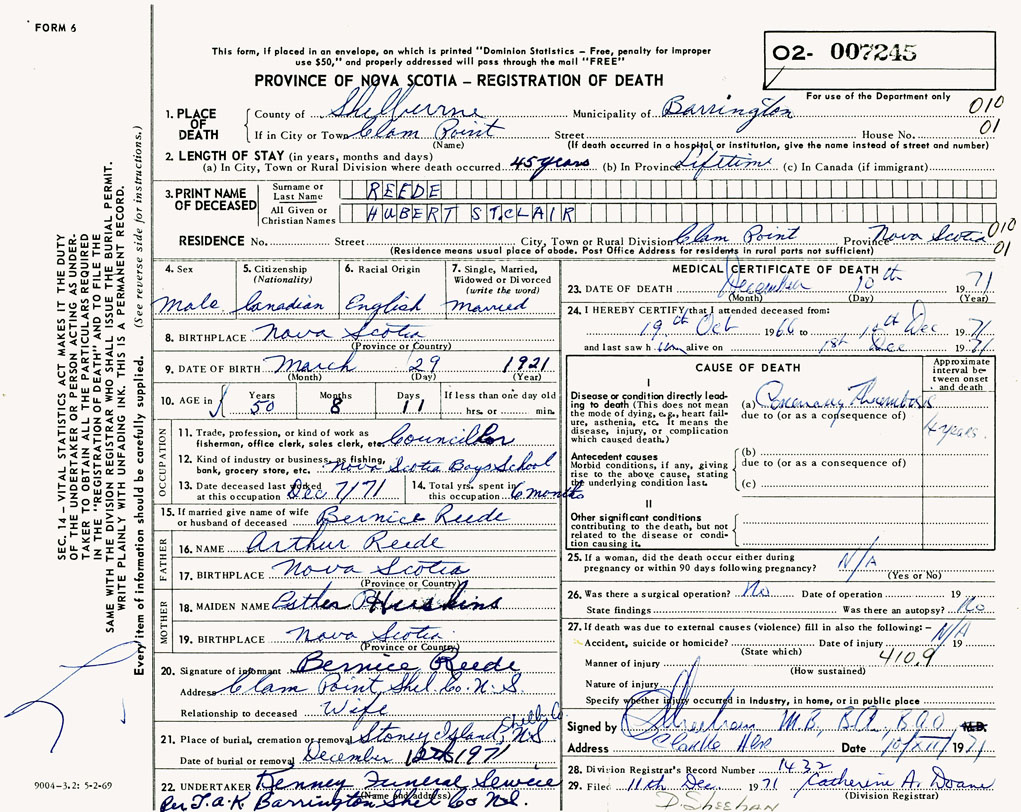 FORM 6
This form, if placed in an envelope, on which is printed "Dominion Statistics – Free, penalty for improper
use $50," and properly addressed will pass through the mail "FREE"
O2- 007245
PROVINCE OF NOVA SCOTIA – REGISTRATION OF DEATH
For use of the Department only
1. PLACE OF DEATH County of Shelburne Municipality of Barrington 010
If in City or Town Clam Point Street House No. 01
(Name) (If death occurred in a hospital or institution, give the name instead of street and number)
2. LENGTH OF STAY (in years, months and days)
(a) In City, Town or Rural Division where death occurred 45 years (b) In Province Lifetime (c) In Canada (if immigrant)
3. PRINT NAME OF DECEASED Surname or Last Name REEDE
All Given or Christian Names HUBERT ST.CLAIR
RESIDENCE No. Street City, Town or Rural Division Clam Point Province Nova Scotia 010 01
(Residence means usual place of abode. Post Office Address for residents in rural parts not sufficient)
4. Sex
Male
5. Citizenship
(Nationality)
Canadian
6. Racial Origin
English
7. Single, Married,
Widowed or Divorced
(write the word)
Married
8. BIRTHPLACE Nova Scotia
(Province or Country)
9. DATE OF BIRTH March 29 1921
(Month) (Day) (Year)
10. AGE in Years Months Days If less than one day old
50 8 11 hrs. or min.
OCCUPATION
11. Trade, profession, or kind of work as
fisherman, office clerk, sales clerk, etc. Councillor
12. Kind of industry or business, as fishing,
bank, grocery store, etc. Nova Scotia Boys School
13. Date deceased last worked
at this occupation Dec 7/71
14. Total yrs. spent in
this occupation 6 months
15. If married give name of wife
or husband of deceased Bernice Reede
FATHER
16. NAME Arthur Reede
17. BIRTHPLACE Nova Scotia
(Province or Country)
MOTHER
18. MAIDEN NAME Esther P Huskins
19. BIRTHPLACE Nova Scotia
(Province or Country)
20. Signature of informant Bernice Reede
Address Clam Point, Shel. Co. N. S.
Relationship to deceased Wife
21. Place of burial, cremation or removal Stoney Island, Shelb. Co. N.S
Date of burial or removal December 12th 1971
22. UNDERTAKER Kenney Funeral Service
(Name and address)
Per J.a.K Barrington Shel Co N.S.
MEDICAL CERTIFICATE OF DEATH
23. DATE OF DEATH December 10th 1971
(Month) (Day) (Year)
24. I HEREBY CERTIFY that I attended deceased from:
19th Oct 1966 to 1st Dec 1971
and last saw him alive on 1st Dec 1971
CAUSE OF DEATH
Approximate
interval be-
tween onset
and death
I
Disease or condition directly lead-
ing to death (This does not mean
the mode of dying, e.g., heart fail-
ure, asthenia, etc. It means the
disease, injury, or complication
which caused death.)
(a) Coronary Thrombosis
due to (or as a consequence of)
4 years.
Antecedent causes
Morbid conditions, if any, giving
rise to the above cause, stating
the underlying condition last.
(b)
due to (or as a consequence of)
(c)
II
Other significant conditions
contributing to the death, but not
related to the disease or condi-
tion causing it.
25. If a woman, did the death occur either during
pregnancy or within 90 days following pregnancy? N/A
(Yes or No)
26. Was there a surgical operation? No Date of operation 19
State findings Was there an autopsy? No
27. If death was due to external causes (violence) fill in also the following:– N/A
Accident, suicide or homicide? Date of injury 19
(State which) 410.9
Manner of injury
(How sustained)
Nature of injury
Specify whether injury occurred in industry, in home, or in public place
Signed by M.B., B.Ch., B.A.O M.D.
Address Date 10/XII/ 1971
28. Division Registrar's Record Number 1432
29. Filed 11th Dec. 1971 Catherine A. Doane
(Division Registrar)
D. SHEEHAN
SEC. 14 – VITAL STATISTICS ACT MAKES IT THE DUTY
OF THE UNDERTAKER OR PERSON ACTING AS UNDER-
TAKER TO OBTAIN ALL THE PARTICULARS REQUIRED
IN THE "REGISTRATION OF DEATH" AND TO FILE THE
SAME WITH THE DIVISION REGISTRAR WHO SHALL ISSUE THE BURIAL PERMIT.
WRITE PLAINLY WITH UNFADING INK. THIS IS A PERMANENT RECORD.
Every item of information should be carefully supplied. (See reverse side for instructions.)
9004-3.2: 5-2-69